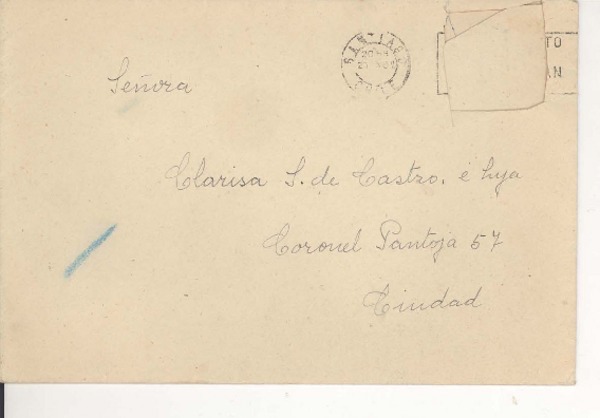 SANTIAGO
TO
AN
Señora
Clarisa S. de Castro, e hija
Coronel Pantoja 57
Ciudad